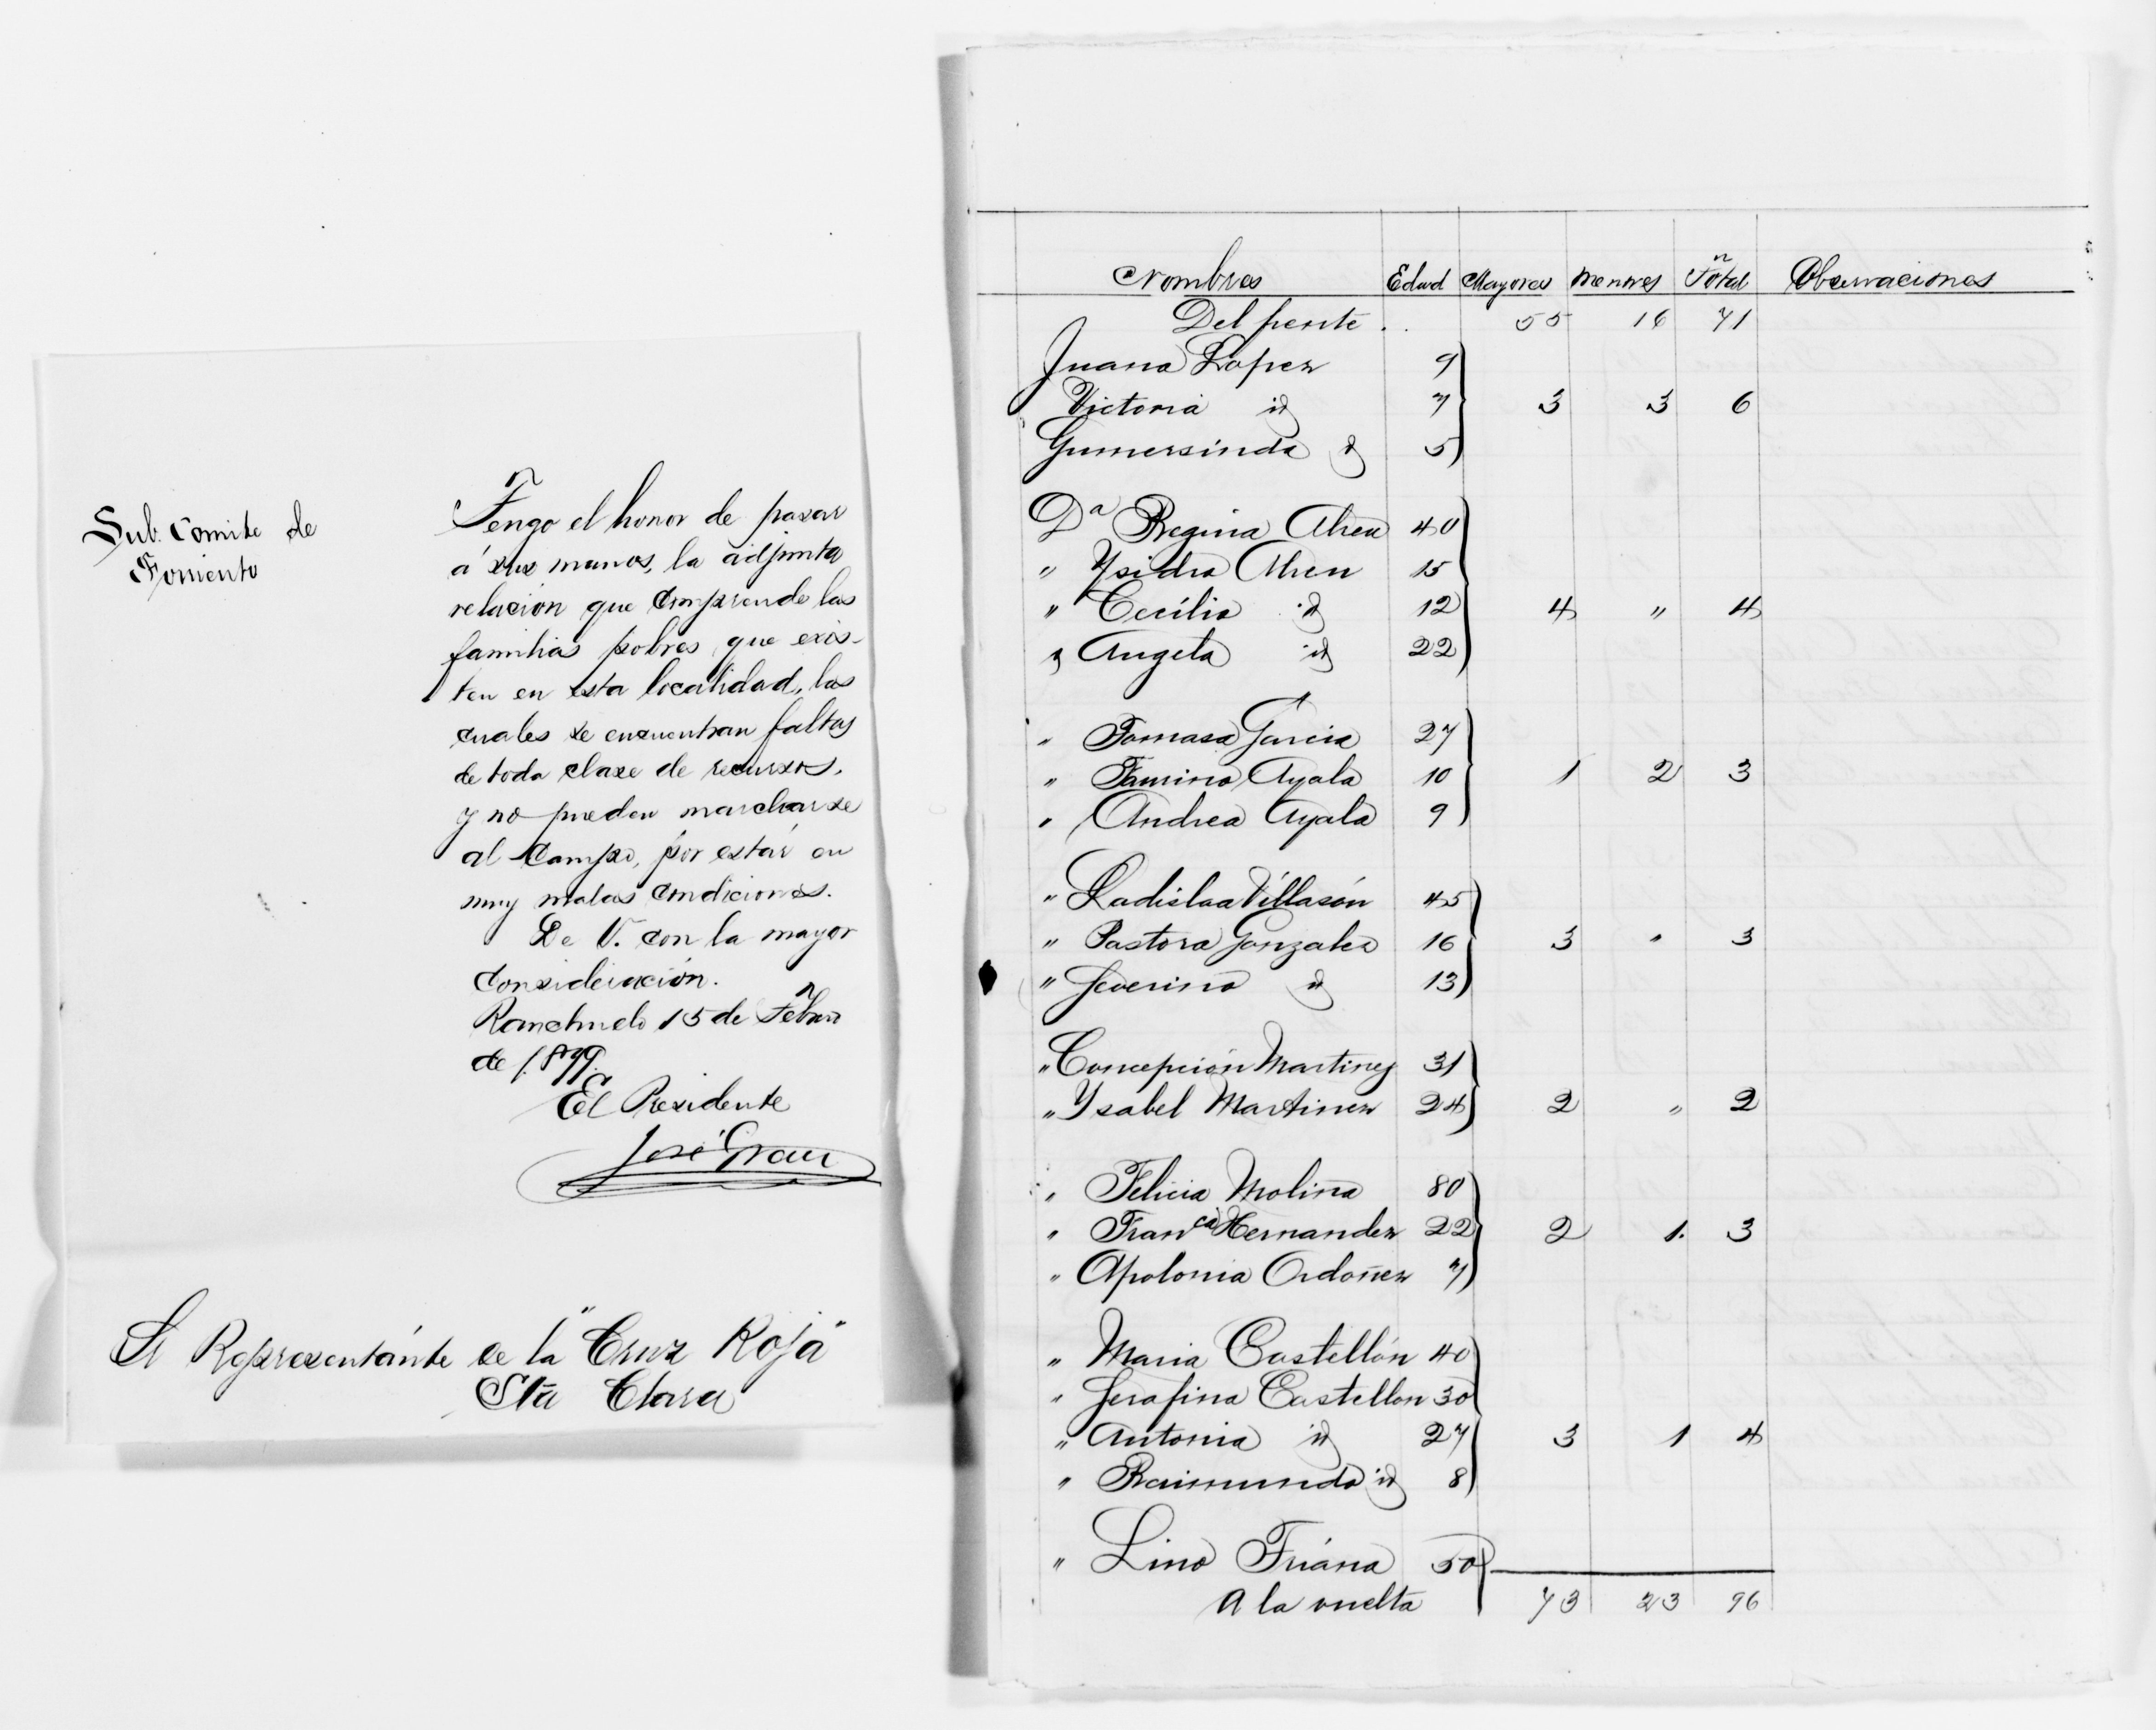 Sub. Comite de
Fomento
Tengo el honor de pasar
á sus manos, la adjunta
relacion que comprende las
familias pobres que exis-
ten en esta localidad, las
cuales se encuentran faltas
de toda clase de recursos,
y no pueden marcharse
al Campo, por estár en
muy malas condiciones.
De V. con la mayor
consideración.
Ranchuelo 15 de Febro
de 1899.
El Presidente
José Grau
Sr Representánte de la "Cruz Roja"
Sta Clara
Nombres Edad Mayores Menores Total Observaciones
Del frente . . 55 16 71
Juana Lopez 9
Victoria id 7 3 3 6
Gumersinda id 5
Da Regina 40
" Ysidra 15
" Cecilia id 12 4 " 4
" Angela id 22
" Tomasa Garcia 27
" Ayala 10 1 2 3
" Andrea Ayala 9
" Ladislaa Villasón 45
" Pastora Gonzalez 16 3 " 3
" Severino id 13
" Concepción Martinez 31
" Ysabel Martinez 24 2 " 2
" Felicia Molina 80
" Franca Hernandez 22 2 1. 3
" Apolonia Ordoñez 7
" Maria Castellón 40
" Serafina Castellon 30
" Antonia id 27 3 1 4
" Raimunda id 8
" Lino Triána 50
A la vuelta 73 23 96